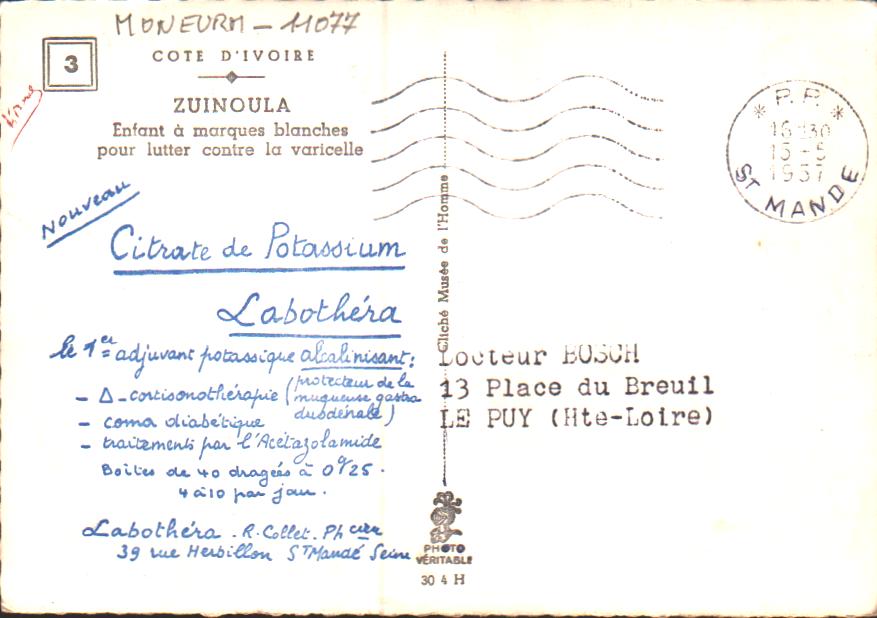 MONEURM - 11077
3
COTE D'IVOIRE
ZUINOULA
Enfant à marques blanches
pour lutter contre la varicelle
Nouveau
Citrate de Potassium
Labothéra
le 1er adjuvant potassique alcalinisant :
- Δ - cortisonothérapie (protecteur de la
muqueuse gastro
duodénale)
- coma diabétique
- traitements par l'Acétazolamide
Boîtes de 40 dragées à 0g25.
4 à 10 par jour.
Labothéra - R. Collet. Phcien
39 rue Herbillon St Mandé Seine
Cliché Musée de l'Homme
PHOTO
VÉRITABLE
30 4 H
* P.P. *
16 H30
15 - 5
1957
ST MANDE
Docteur BOSCH
13 Place du Breuil
LE PUY (Hte-Loire)